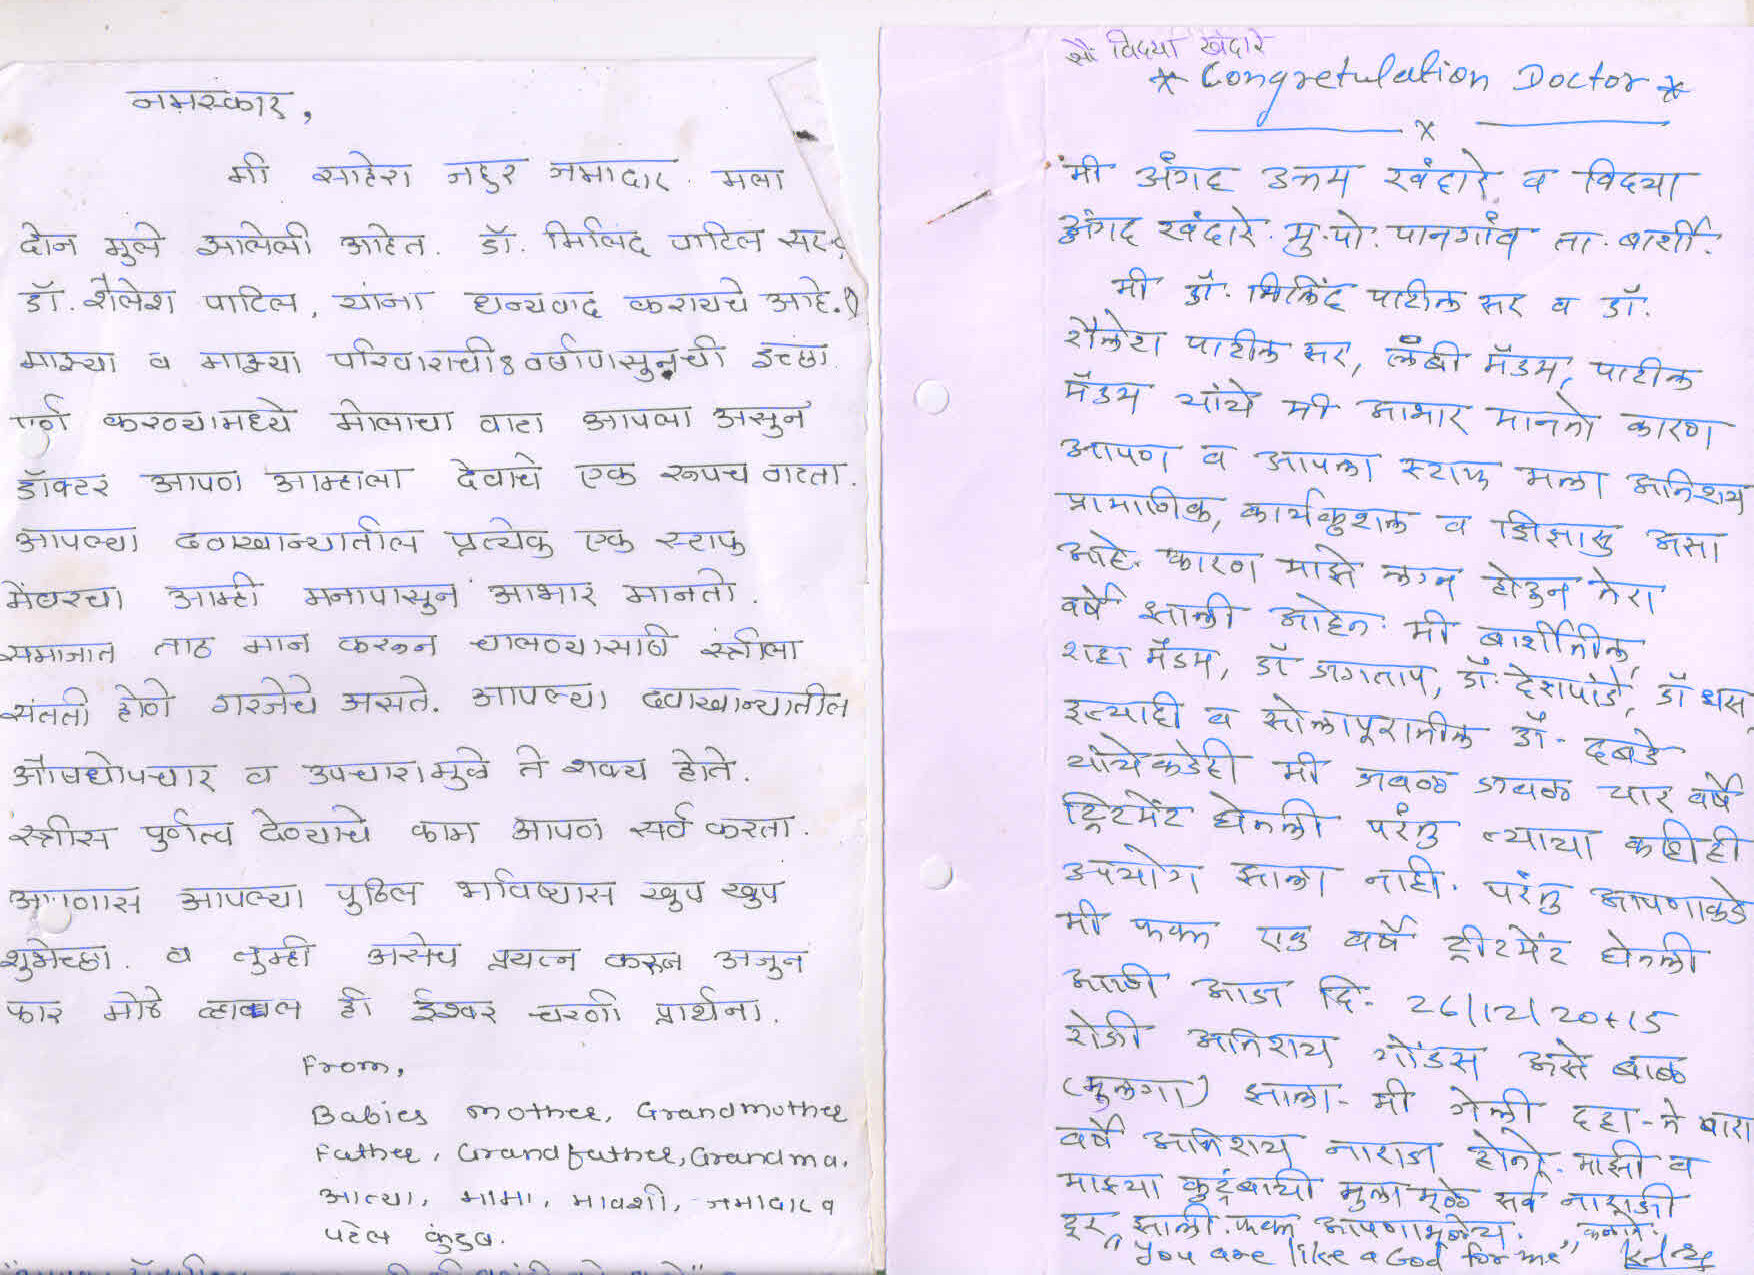 नमस्कार,
मी साहेरा जहुर जमादार. मला
दोन मुले झालेली आहेत. डॉ. मिलिंद पाटिल सर,
डॉ. शैलेश पाटिल, यांना धन्यवाद करायचे आहे.
माझ्या व माझ्या परिवाराची 8 वर्षापासुनची इच्छा
पुर्ण करण्यामध्ये मोलाचा वाटा आपला असुन
डॉक्टर आपण आम्हाला देवाचे एक रूपच वाटता.
आपल्या दवाखान्यातील प्रत्येक एक स्टाफ
मेंबरचा आम्ही मनापासुन आभार मानतो.
समाजात ताठ मान करून चालण्यासाठी स्त्रीला
संतती होणे गरजेचे असते. आपल्या दवाखान्यातील
औषधोपचार व उपचारामुळे ते शक्य होते.
स्त्रीस पुर्णत्व देण्याचे काम आपण सर्व करता.
आपणास आपल्या पुढिल भविष्यास खुप खुप
शुभेच्छा. व तुम्ही असेच प्रयत्न करून अजुन
फार मोठे व्हावाल ही ईश्वर चरणी प्रार्थना.
From,
Babies mother, Grandmother
Father, Grandfather, Grandma,
आत्या, मामा, मावशी, जमादार व
पटेल कुंटुब.
सौ विदया खंदारे
* Congretulation Doctor *
x
मी अंगद उत्तम खंदारे व विदया
अंगद खंदारे. मु.पो. पानगांव ता. बार्शी.
मी डॉ. मिलिंद पाटील सर व डॉ.
शैलेश पाटील सर, मॅडम, पाटील
मॅडम यांचे मी आभार मानतो कारण
आपण व आपला स्टाफ मला अतिशय
प्रामाणिक, कार्यकुशल व जिज्ञासु असा
आहे. कारण माझे लग्न होउन तेरा
वर्षे झाली आहेत. मी बार्शीतील,
शहा मॅडम, डॉ जगताप, डॉ. देशपांडे, डॉ धस,
इत्यादी व सोलापूरातील डॉ. दबडे
यांचेकडेही मी जवळ जवळ चार वर्षे
ट्रिटमेंट घेतली परंतु त्याचा काहीही
उपयोग झाला नाही. परंतु आपणाकडे
मी फक्त एक वर्षे ट्रीटमेंट घेतली
आणी आज दि. 26/12/2015
रोजी अतिशय गोंडस असे बाळ
(मुलगा) झाला. मी गेली दहा-ते बारा
वर्षे अतिशय नाराज होतो. माझी व
माझ्या कुटुंबाची मुलामुळे सर्व नाराजी
दुर झाली. फक्त आपणामुळेच.
"you are like a God for me"